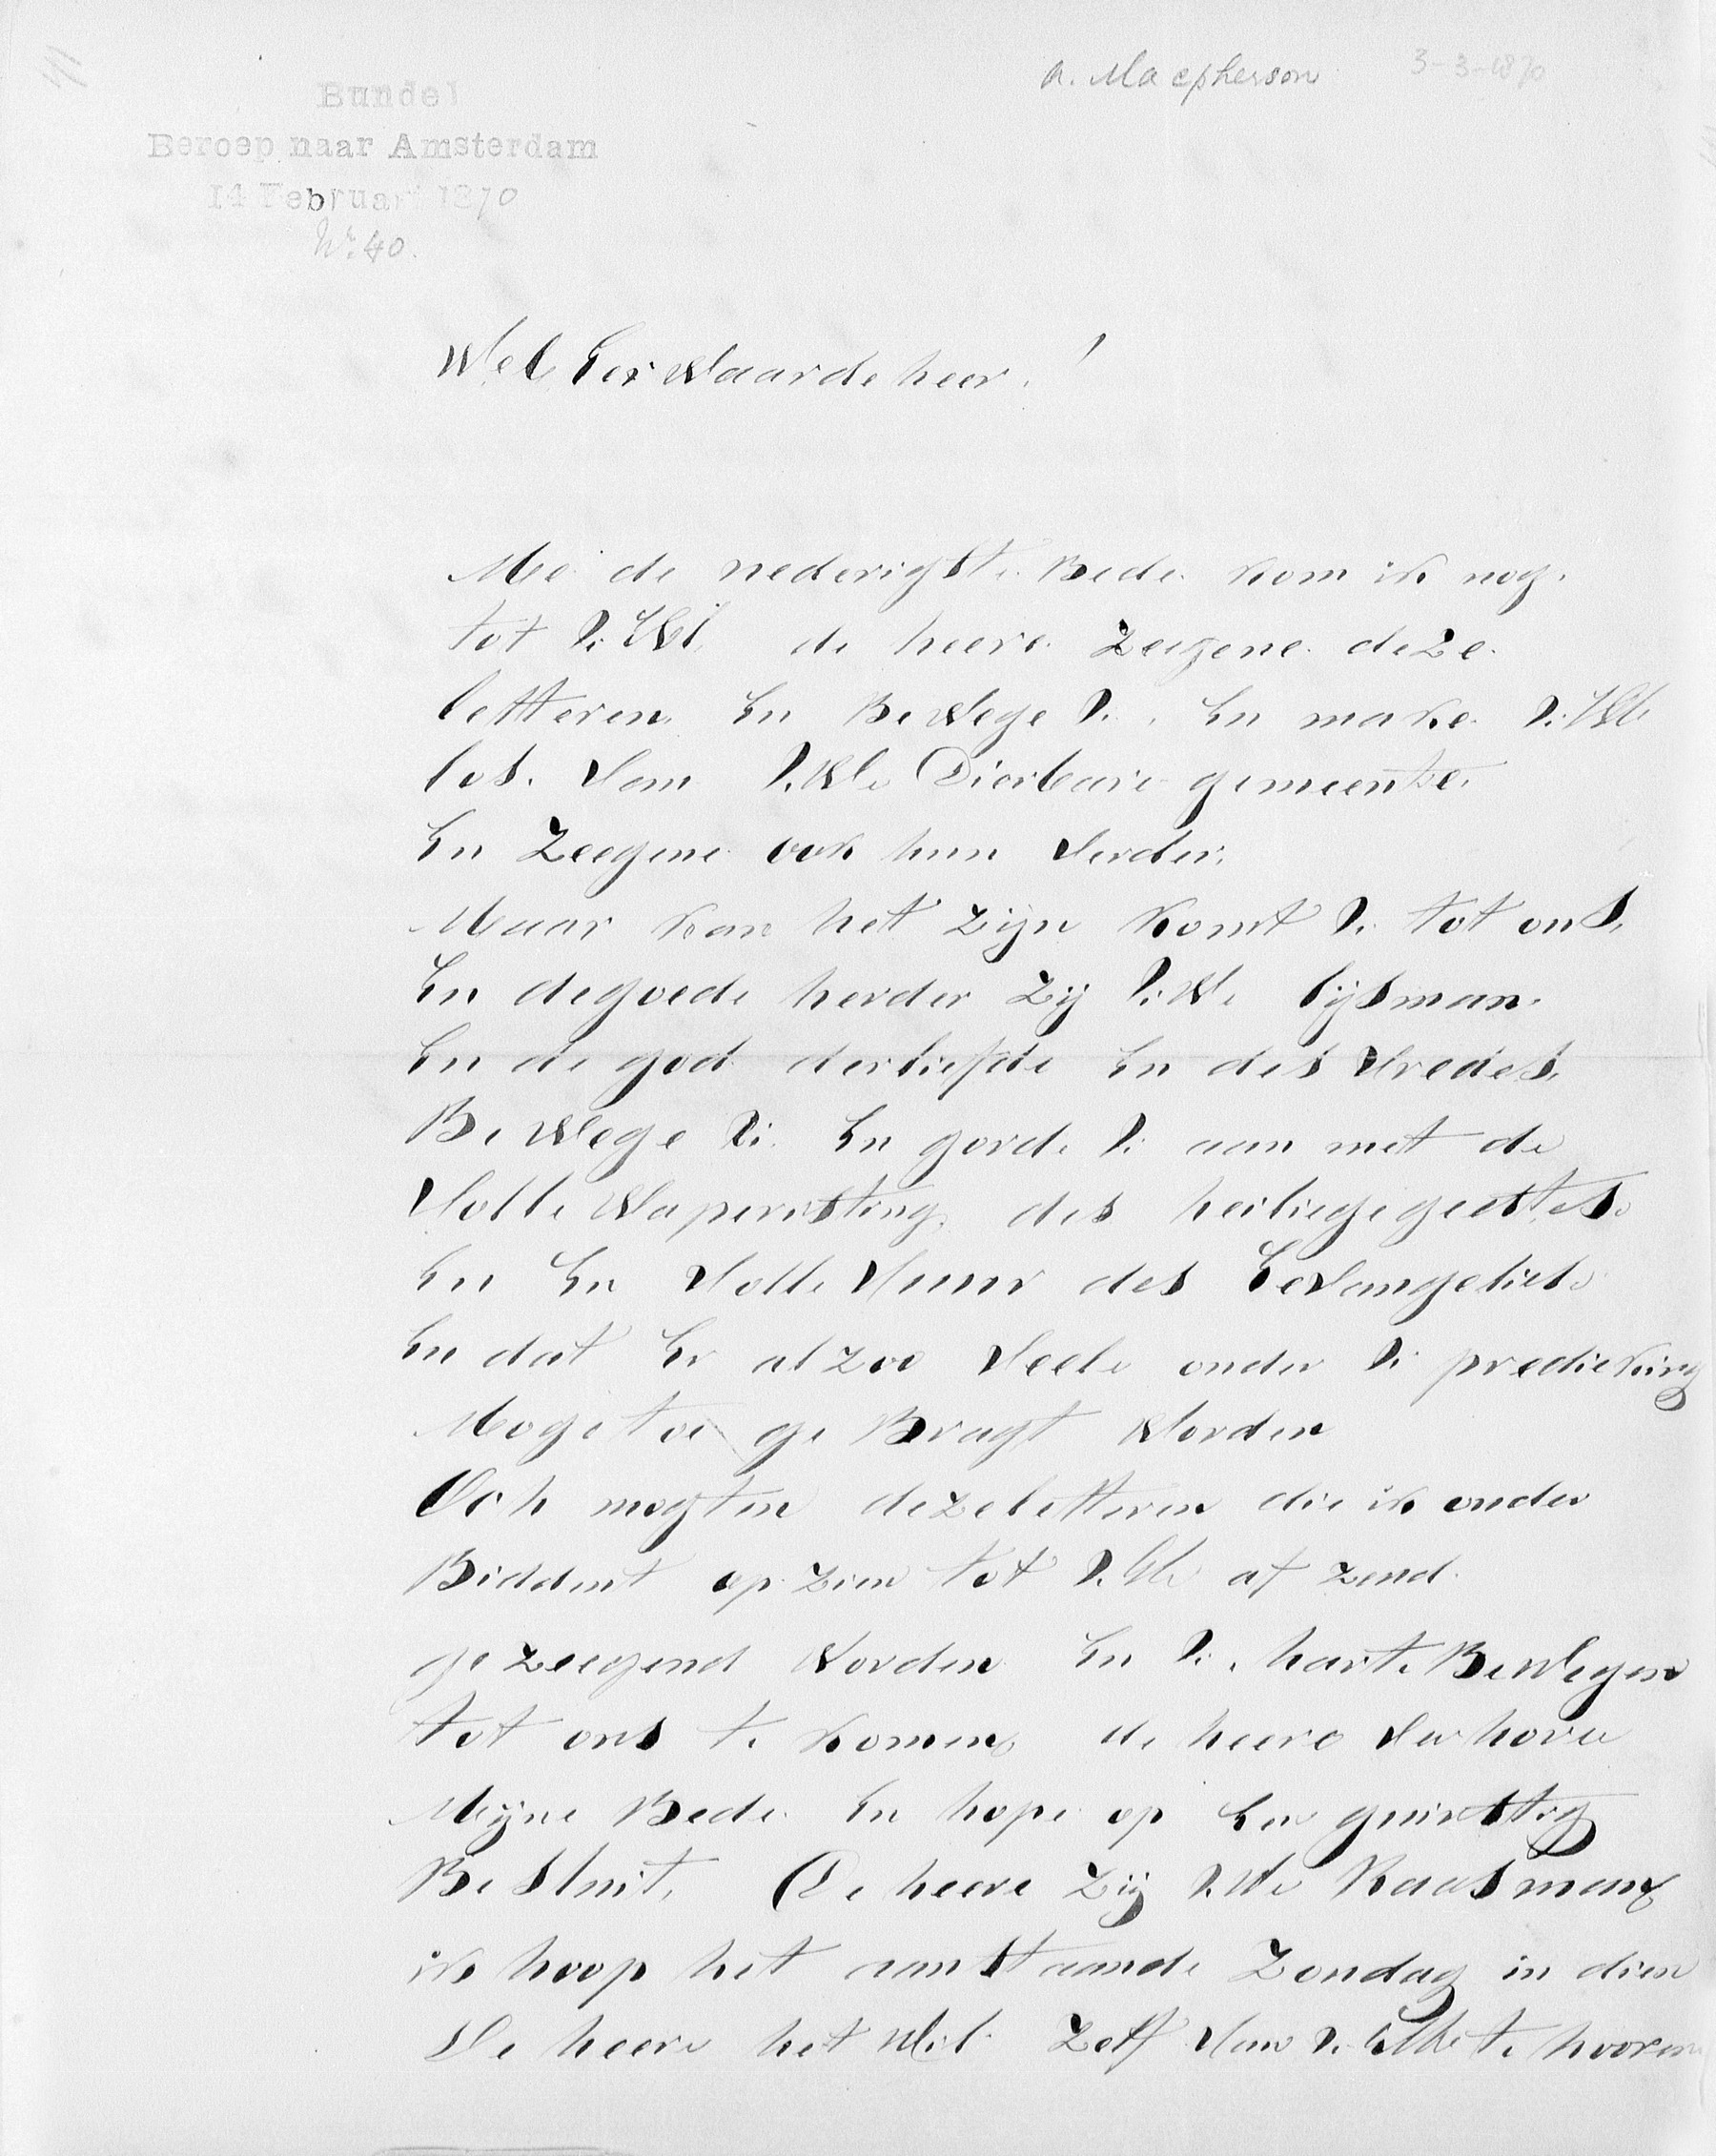 A. Macpherson 3-3-1870
Bundel
Beroep naar Amsterdam
14 Februari 1870
Nr. 40.
Wel Eer Waarde heer!
Me de nederigste Bede kom ik nog
tot U. WE de heere zeegene deze
letteren En BeWege U. En make U. WE
los Van U. We Dierbare gemeente
En Zeegene ook hun Verder.
Maar kan het zijn komt U. tot ons,
En degoede herder Zij U. We lijsman
En de god derliefde En des Vredes,
Be Wege U. En gorde U. aan met de
Volle Wapenristing des heiliegegeestes
En En Volle Vuur des EeVangeliels
En dat Er alzoo Veele onder U. predicking
Moge toe ge Bragt Worden
Och mogten dezeletteren die ik onder
Biddent op zien tot U. We af zend
ge zeegend Worden En U. harte BeWegen
tot ons te komen de heere Verhore
Mijne Bede En hope op Een guinstig
BeSluit, De heere Zij U. We Raadsman
ik hoop het aanstaande Zondag in dien
De heere het Wil Zelf Van U. te hooren